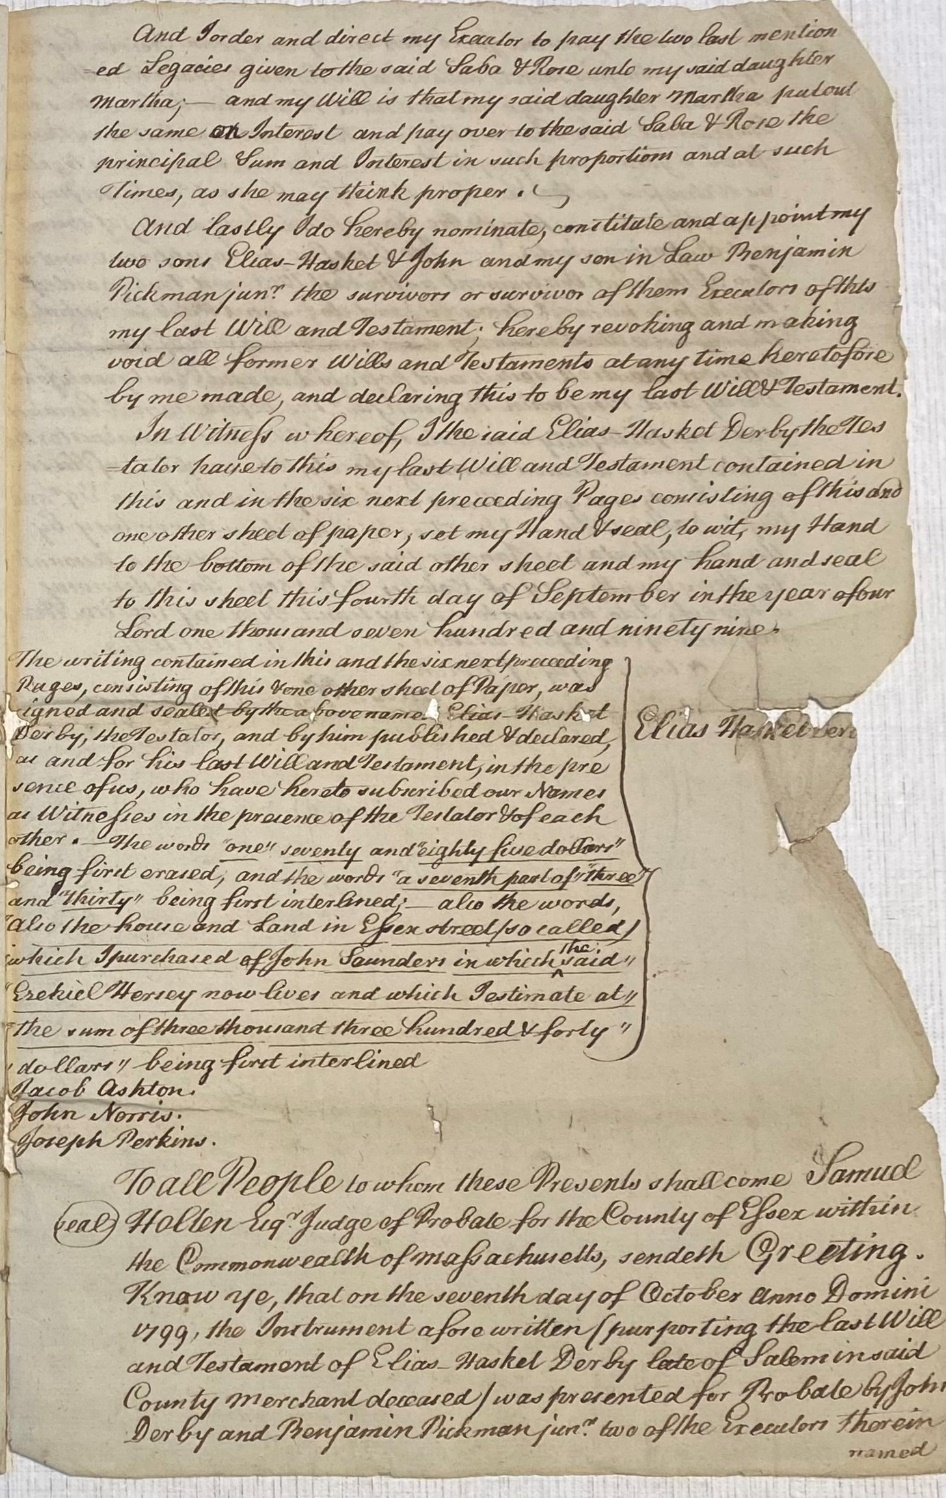 And I order and direct my Executor to pay the two last mention
=ed Legacies given to the said Saba & Rose unto my said daughter
Martha;— and my Will is that my said daughter Martha put out
the same on Interest and pay over to the said Saba & Rose the
principal Sum and Interest in such proportions and at such
Times, as she may think proper.
And lastly I do hereby nominate, constitute and appoint my
two sons Elias-Hasket & John and my son in Law Benjamin
Pickman junr. the survivors or survivor of them Executors of this
my last Will and Testament; hereby revoking and making
void all former Wills and Testaments at any time heretofore
by me made, and declaring this to be my last Will & Testament.
In Witness whereof, I the said Elias-Hasket Derby the Tes
=tator have to this my last Will and Testament contained in
this and in the six next preceeding Pages consisting of this and
one other sheet of paper, set my Hand & seal, to wit, my Hand
to the bottom of the said other sheet and my hand and seal
to this sheet this fourth day of September in the year of our
Lord one thousand seven hundred and ninety nine.
The writing contained in this and the six next preceeding
Pages, consisting of this & one other sheet of Paper, was
signed and sealed by the above named Elias-Hasket
Derby, the Testator, and by him published & declared,
as and for his last Will and Testament, in the pre
sence of us, who have hereto subscribed our Names
as Witnesses in the presence of the Testator & of each
other. — The words "one" seventy and "eighty five dollars"
being first erased, and the words "a seventh part of" "three"
and "thirty" being first interlined;— also the words,
"also the house and Land in Essex street (so called)
which I purchased of John Saunders in which the said"
"Ezekiel Hersey now lives and which I estimate at"
"the sum of three thousand three hundred & forty"
"dollars" being first interlined
Elias Hasket Der
Jacob Ashton.
John Norris.
Joseph Perkins.
To all People to whom these Presents shall come Samuel
(seal) Holten Esqr. Judge of Probate for the County of Essex within
the Commonwealth of Massachusetts, sendeth Greeting.
Know ye, that on the seventh day of October Anno Domini
1799, the Instrument afore written (purporting the last Will
and Testament of Elias-Hasket Derby late of Salem in said
County Merchant deceased) was presented for Probate by John
Derby and Benjamin Pickman junr. two of the Executors therein
named